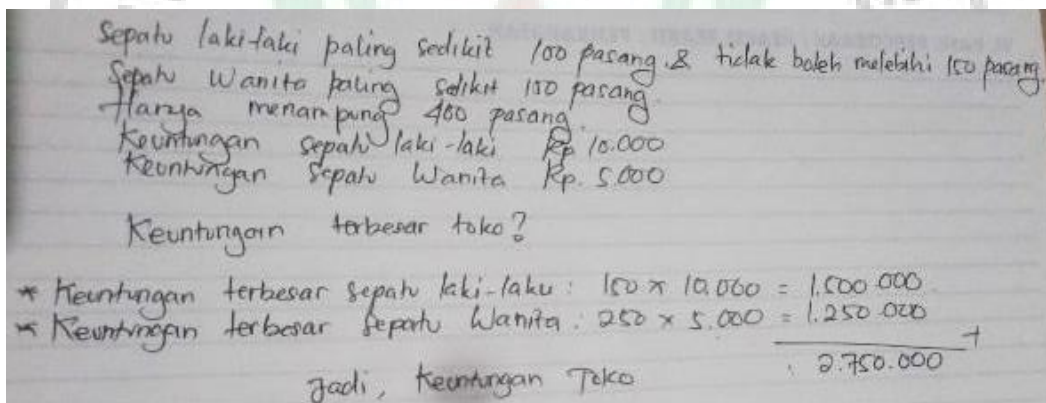 Sepatu laki-laki paling sedikit 100 pasang & tidak boleh melebihi 150 pasang
Sepatu Wanita paling sedikit 150 pasang
Hanya menampung 400 pasang.
Keuntungan sepatu laki-laki Rp 10.000
Keuntungan Sepatu Wanita Rp. 5.000
Keuntungan terbesar toko?
* Keuntungan terbesar sepatu laki-laku : 150 x 10.000 = 1.500.000
* Keuntungan terbesar sepatu Wanita : 250 x 5.000 = 1.250.000
+
2.750.000
Jadi, Keuntungan Toko